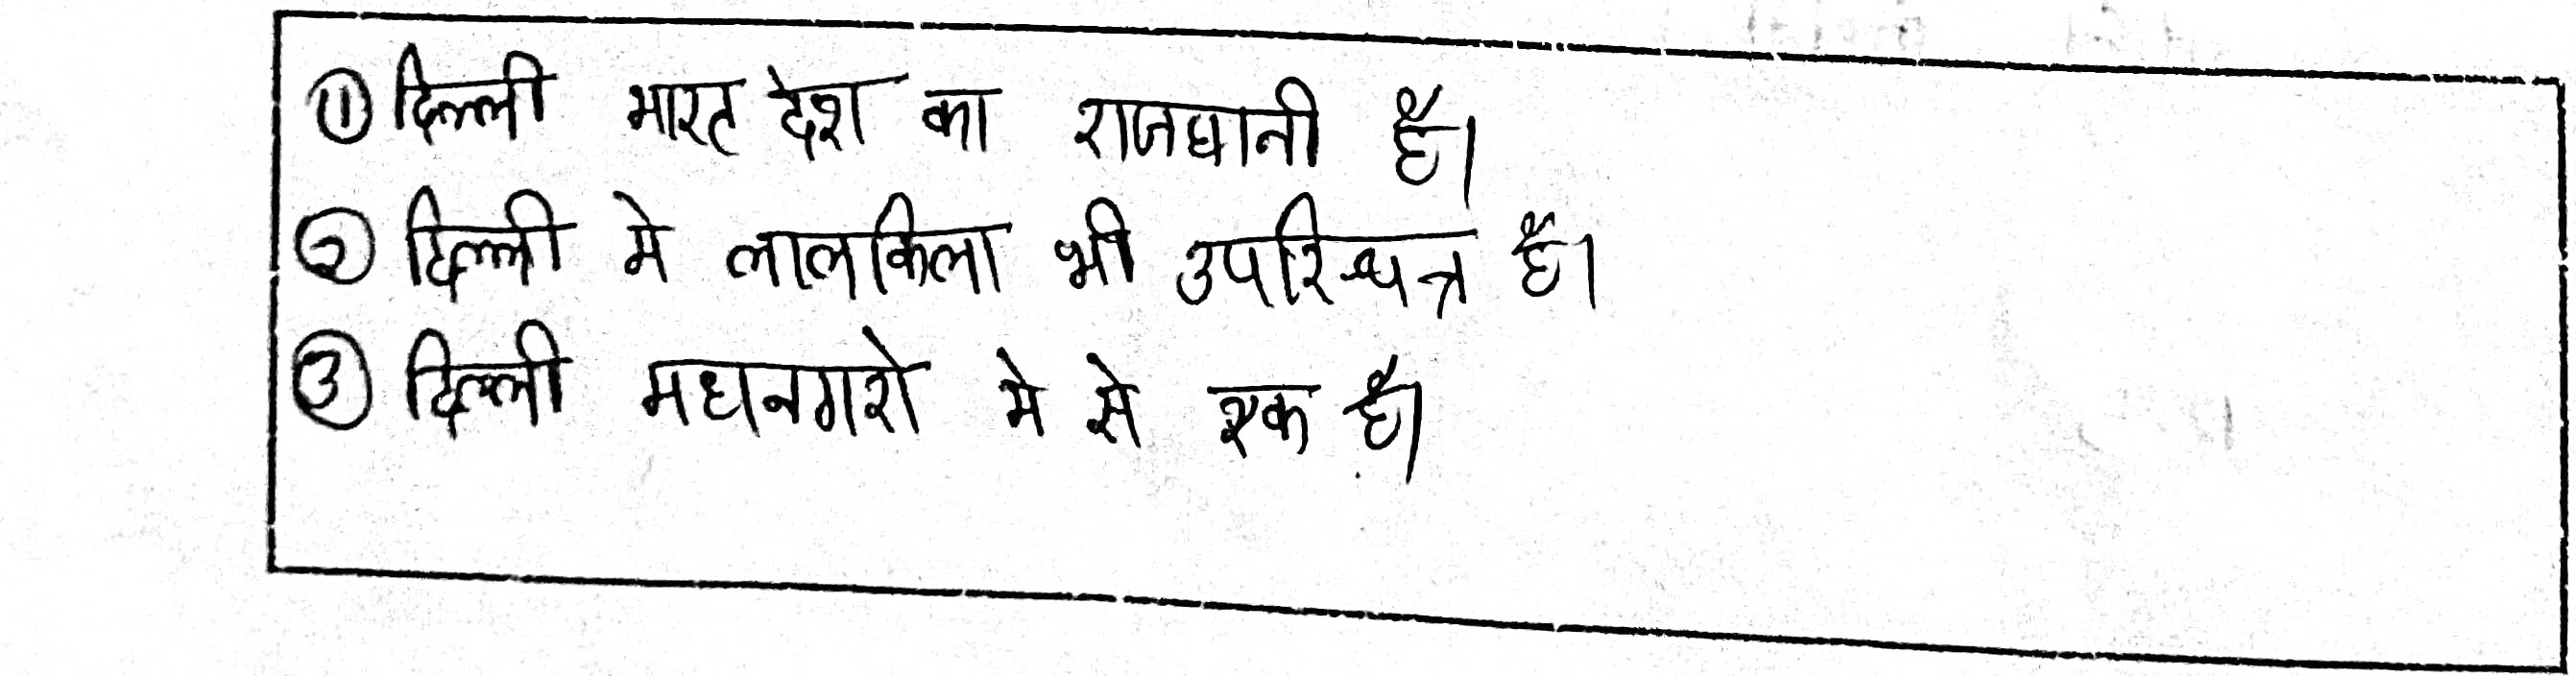 ① दिल्ली भारत देश का राजधानी है।
② दिल्ली मे लालकिला भी उपस्थित है।
③ दिल्ली महानगरो मे से एक है।